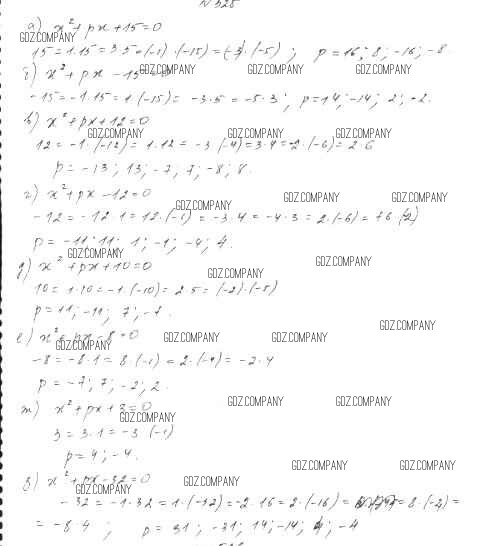 N 525
а) x² + px + 15 = 0
GDZ.COMPANY
15 = 1·15 = 3·5 = (-1)·(-15) = (-3)·(-5) ; p = 16; 8; -16; -8.
б) x² + px - 15 = 0
GDZ.COMPANY GDZ.COMPANY GDZ.COMPANY
-15 = -1·15 = 1·(-15) = -3·5 = -5·3; p = 14; -14; 2; -2.
в) x² + px + 12 = 0
GDZ.COMPANY GDZ.COMPANY GDZ.COMPANY
12 = -1·(-12) = 1·12 = -3·(-4) = 3·4 = -2·(-6) = 2·6
p = -13; 13; -7; 7; -8; 8.
г) x² + px - 12 = 0
GDZ.COMPANY GDZ.COMPANY GDZ.COMPANY
-12 = -12·1 = 12·(-1) = -3·4 = -4·3 = 2·(-6) = +6·(-2)
p = -11; 11; 1; -1; -4; 4.
GDZ.COMPANY
д) x² + px + 10 = 0
GDZ.COMPANY GDZ.COMPANY
10 = 1·10 = -1·(-10) = 2·5 = (-2)·(-5)
p = 11; -11; 7; -7.
GDZ.COMPANY
е) x² + px - 8 = 0
GDZ.COMPANY GDZ.COMPANY GDZ.COMPANY
-8 = -8·1 = 8·(-1) = 2·(-4) = -2·4
p = -7; 7; -2; 2.
ж) x² + px + 3 = 0
GDZ.COMPANY GDZ.COMPANY GDZ.COMPANY
3 = 3·1 = -3·(-1)
p = 4; -4.
GDZ.COMPANY GDZ.COMPANY
з) x² + px - 32 = 0
GDZ.COMPANY GDZ.COMPANY
-32 = -1·32 = 1·(-32) = -2·16 = 2·(-16) = 8·(-4) =
= -8·4 ; p = 31; -31; 14; -14; 4; -4